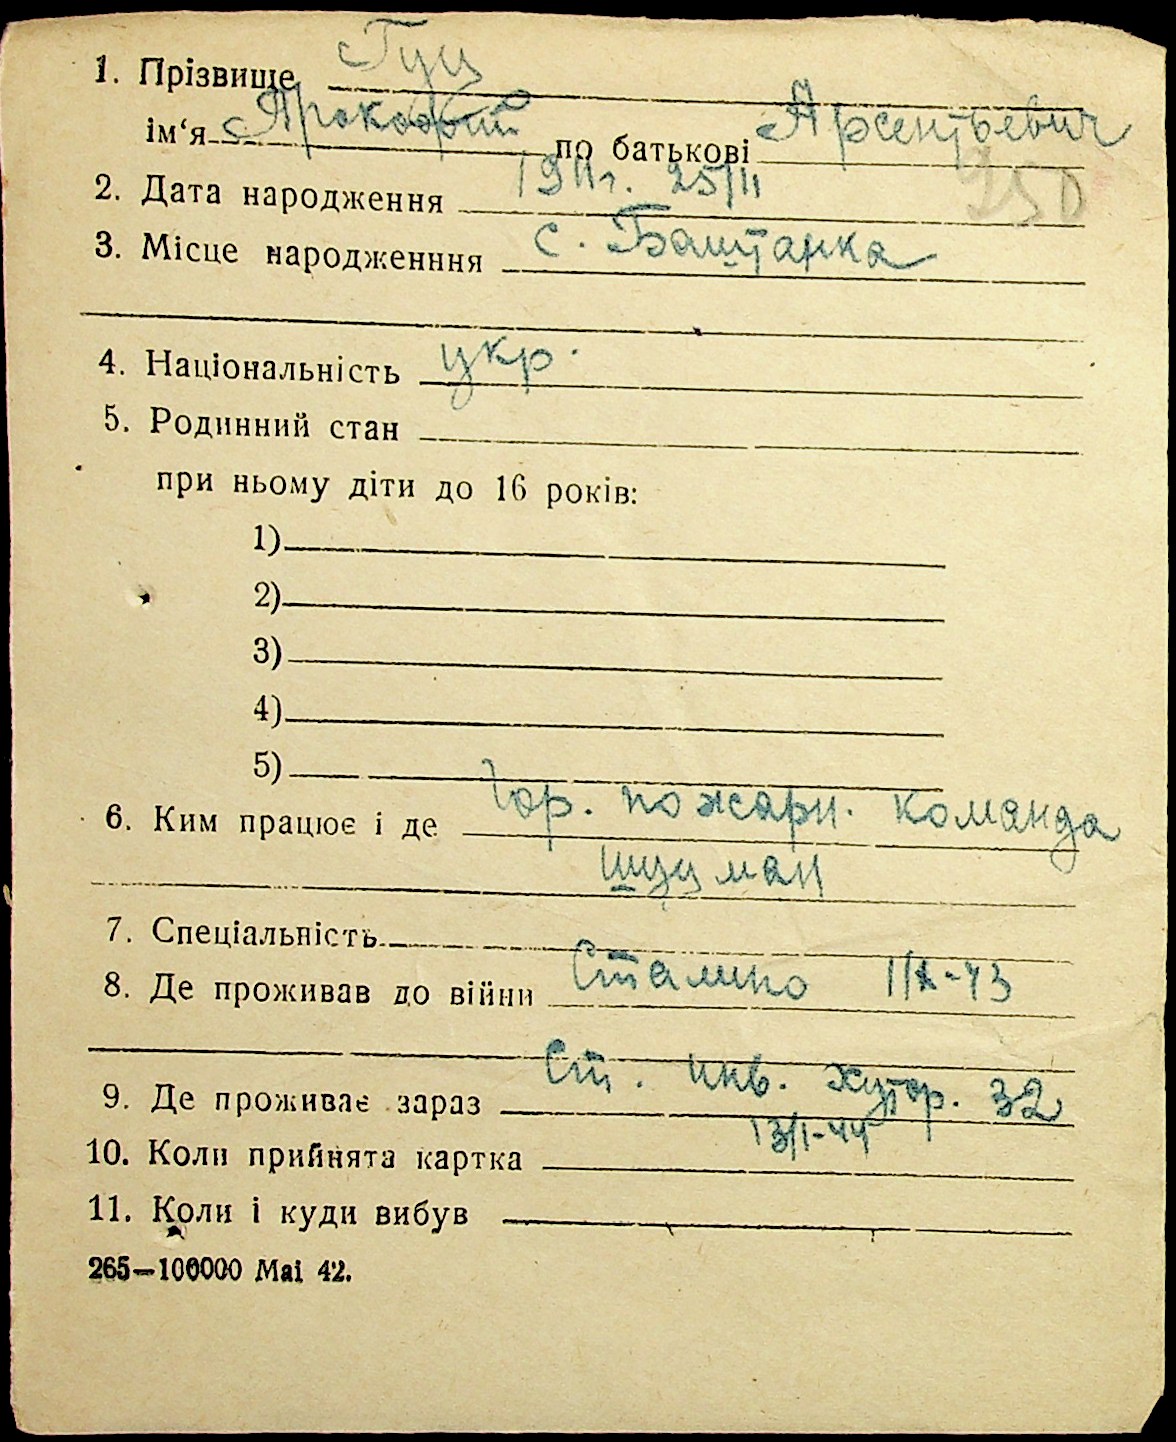 1. Прізвище Гуц
ім‘я Прокофий по батькові Арсентьевич
2. Дата народження 1911г. 25/II
250
3. Місце народженння с. Баштанка
4. Національність укр.
5. Родинний стан
при ньому діти до 16 років:
1)
2)
3)
4)
5)
6. Ким працює і де Гор. пожарн. команда
шуцман
7. Спеціальність
8. Де проживав до війни Сталино 1/X-43
9. Де проживає зараз Ст. инв. хутор. 32
10. Коли прийнята картка 13/I-44
11. Коли і куди вибув
265—100000 Mai 42.